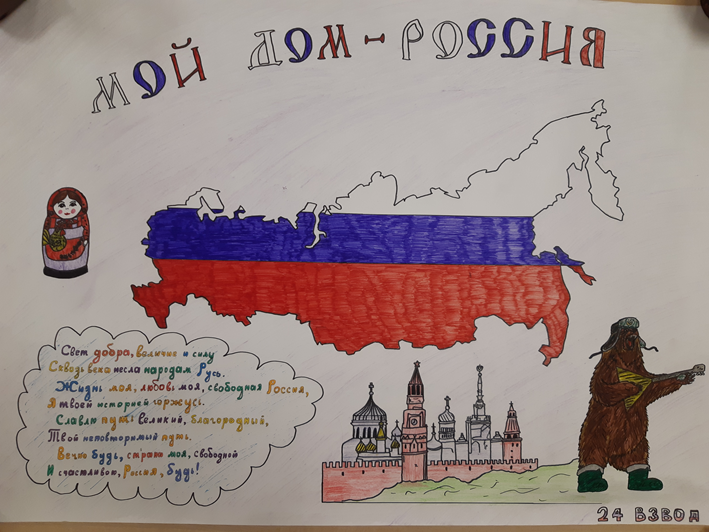 МОЙ ДОМ-РОССИЯ
Свет добра, величие и силу
Сквозь века несла народам Русь.
Жизнь моя, любовь моя, свободная Россия,
Я твоей историей горжусь.
Славлю путь великий, благородный,
Твой неповторимый путь.
Вечно будь, страна моя, свободной
И счастливою, Россия, будь!
24 ВЗВОД